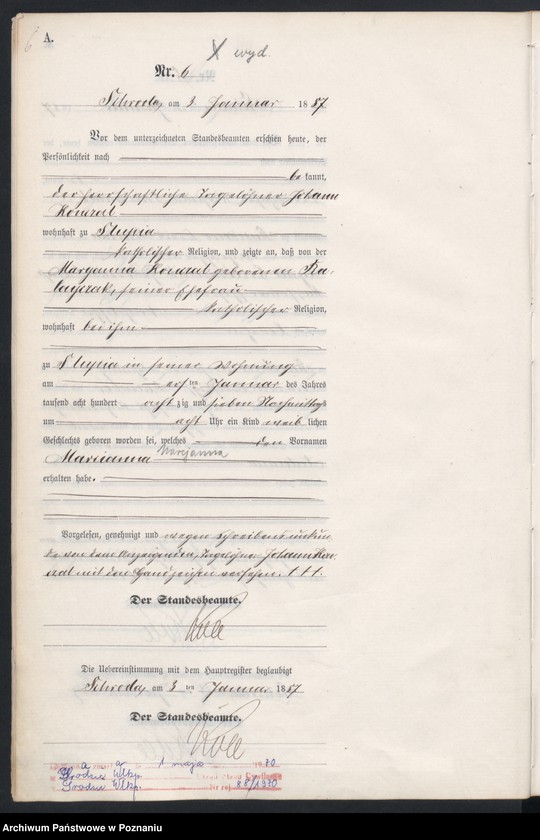 6
A.
X wyd.
Nr. 6
Schroda, am 3 Januar 1887
Vor dem unterzeichneten Standesbeamten erschien heute, der
Persönlichkeit nach
bekannt,
der herrschaftliche Tagelöhner Johann
Konrat
wohnhaft zu Slupia
katholischer Religion, und zeigte an, daß von der
Maryanna Konrat geborenen Ra-
tayczak, seiner Ehefrau
katholischer Religion,
wohnhaft bei ihm
zu Slupia in seiner Wohnung
am ersten Januar des Jahres
tausend acht hundert achtzig und sieben Nachmittags
um acht Uhr ein Kind weiblichen
Geschlechts geboren worden sei, welches den Vornamen
Marianna Maryanna
erhalten habe.
Vorgelesen, genehmigt und wegen Schreibensunkun-
de von dem Anzeigenden, Tagelöhner Johann Kon-
rat mit dem Handzeichen versehen. ttt.
Der Standesbeamte.
Die Uebereinstimmung mit dem Hauptregister beglaubigt
Schroda, am 3ten Januar 1887
Der Standesbeamte.
1 maja 1970.
Środzie Wlkp.
Środzie Wlkp. 88/1970
Archiwum Państwowe w Poznaniu